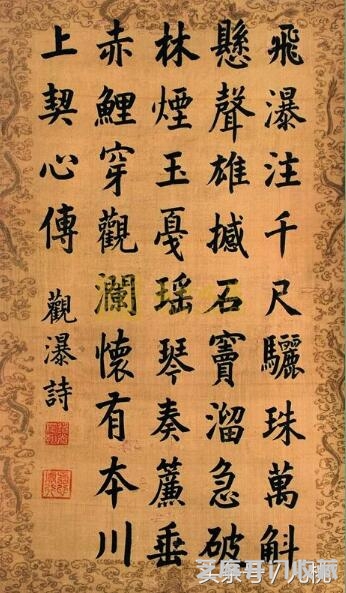 飛瀑注千尺驪珠萬斛
懸聲雄撼石竇溜急破
林煙玉戛瑶琴奏簾垂
赤鯉穿觀瀾懷有本川
上契心傳 觀瀑詩
头条号